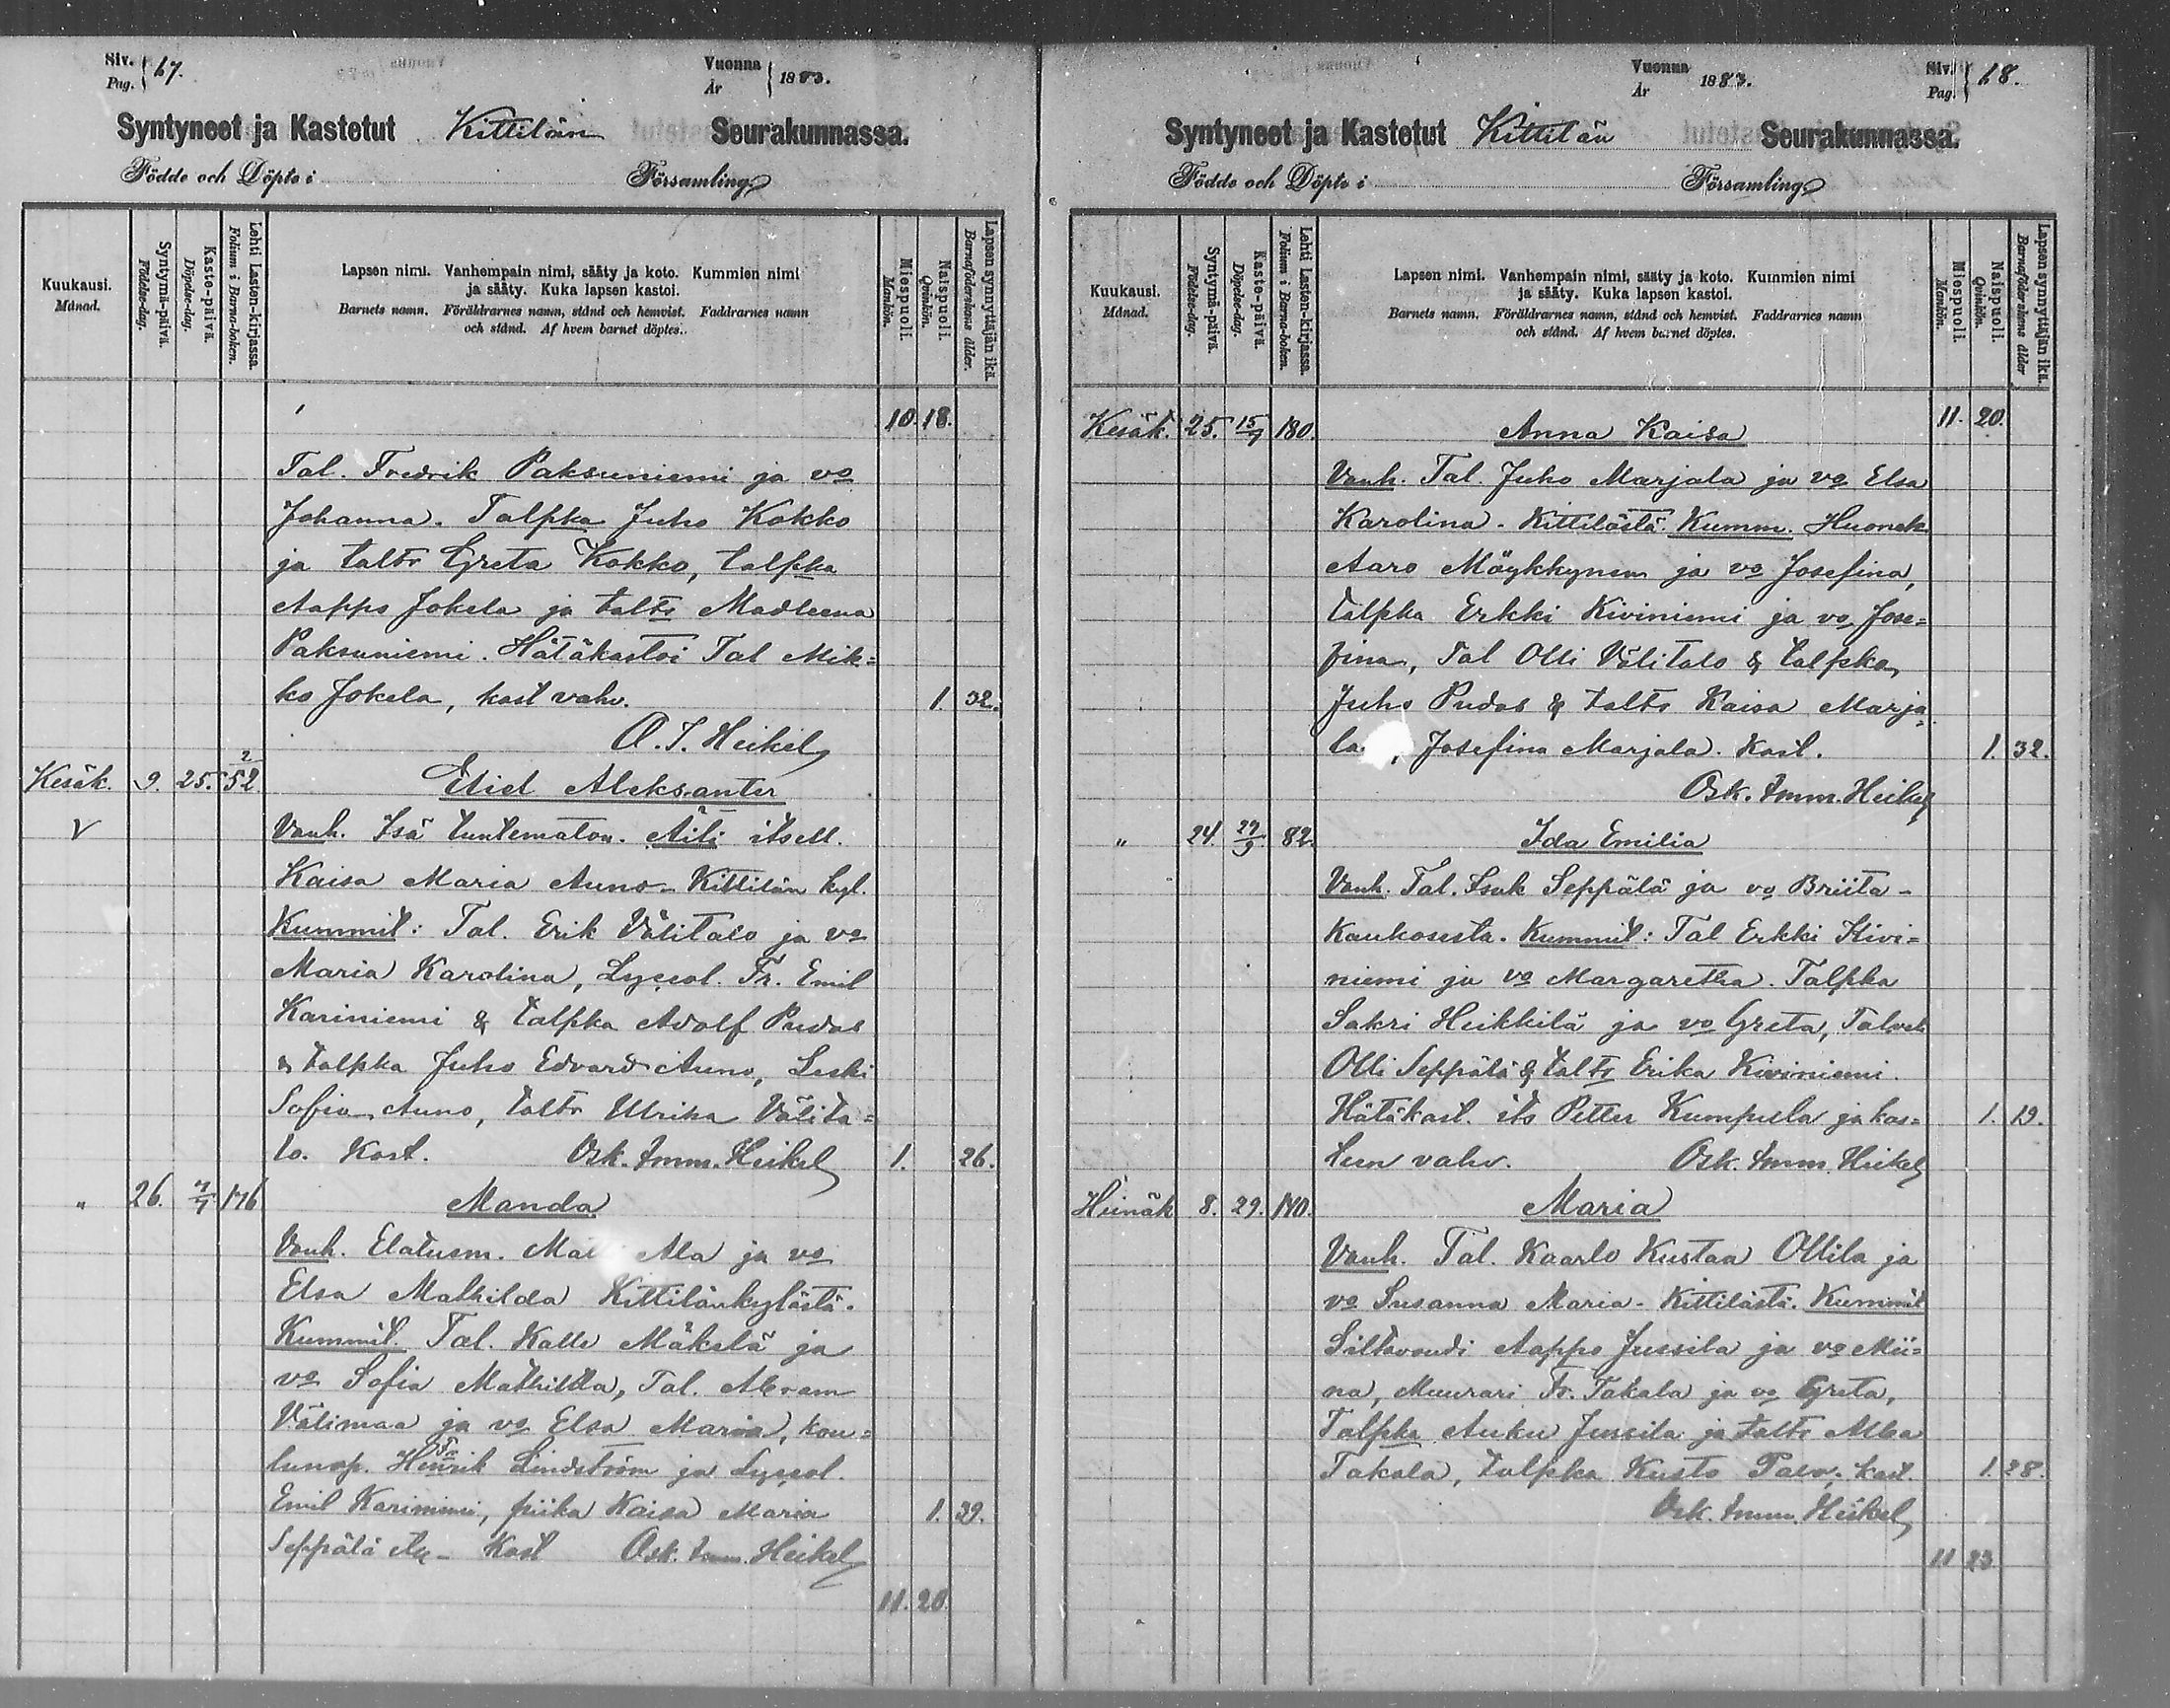 Siv. 67.
Pag.
Vuonna 1883.
År
Syntyneet ja Kastetut Kittilän Seurakunnassa.
Födde och Döpte i Församling
Kuukausi. Månad.
Syntymä-päivä. Födelse-dag.
Kaste-päivä. Döpelse-dag.
Lehti Lasten-kirjassa. Folium i Barna-boken.
Lapsen nimi. Vanhempain nimi, sääty ja koto. Kummien nimi
ja sääty. Kuka lapsen kastoi.
Barnets namn. Föräldrarnes namn, stånd och hemvist. Faddrarnes namn
och stånd. Af hvem barnet döptes.
Miespuoli. Mankön.
Naispuoli. Qvinkön.
Lapsen synnyttäjän ikä. Barnaföderskans ålder.
10. 18.
Tal. Fredrik Paksuniemi ja vo
Johanna. Talpka Juho Kokko
ja taltr Greta Kokko, talpka
Aappo Jokela ja taltr Madleena
Paksuniemi. Hätäkastoi Tal Mik=
ko Jokela, kast vahv. 1. 32.
O. I. Heikel
Kesäk. 9. 25. 2/52 Etiel Aleksanter
V Vanh. Isä tuntematon. Äiti itsell.
Kaisa Maria Auno - Kittilän kyl.
Kummit: Tal. Erik Välitalo ja vo
Maria Karolina, Lyceol. Fr. Emil
Kariniemi & talpka Adolf Pudas
& talpka Juho Edvard Auno, Leski
Sofia Auno, taltr Ulrika Välita=
lo. Kast. Osk. Imm. Heikel 1. 26.
" 26. 7/7 176 Manda
Vanh. Elatusm. Ala ja vo
Elsa Mathilda Kittilänkylästä.
Kummit. Tal. Kalle Mäkelä ja
vo Sofia Mathilda, Tal. Abram
Välimaa ja vo Elsa Maria, kou=
lunop. Fr Henrik Lindström ja Lyceol.
Emil Kariniemi, piika Kaisa Maria 1. 39.
Seppälä Kast Osk. Imm. Heikel
11. 20.
Vuonna 1883.
År
Siv. 68.
Pag.
Syntyneet ja Kastetut Kittilän Seurakunnassa.
Födde och Döpte i Församling
Kuukausi. Månad.
Syntymä-päivä. Födelse-dag.
Kaste-päivä. Döpelse-dag.
Lehti Lasten-kirjassa. Folium i Barna-boken.
Lapsen nimi. Vanhempain nimi, sääty ja koto. Kummien nimi
ja sääty. Kuka lapsen kastoi.
Barnets namn. Föräldrarnes namn, stånd och hemvist. Faddrarnes namn
och stånd. Af hvem barnet döptes.
Miespuoli. Mankön.
Naispuoli. Qvinkön.
Lapsen synnyttäjän ikä. Barnaföderskans ålder
Kesäk. 25. 15/7 180. Anna Kaisa 11. 20.
Vanh. Tal. Juho Marjala ja vo Elsa
Karolina - Kittilästä. Kumm. Huonek
Aaro Möykkynen ja vo Josefina,
talpka Erkki Kiviniemi ja vo Jose=
fina, Tal Olli Välitalo & talpka
Juho Pudas & taltr Kaisa Marja=
la , Josefina Marjala. Kast. 1. 32.
Osk. Imm. Heikel
" 24. 29/9 82. Ida Emilia
Vanh. Tal. Isak Seppälä ja vo Briita -
Kaukosesta. Kummit: Tal Erkki Kivi=
niemi ja vo Margaretha. Talpka
Sakri Heikkilä ja vo Greta,
Olli Seppälä & taltr Erika Kiviniemi.
Hätäkast. its Petter Kumpula ja kas= 1. 19.
teen vahv. Osk. Imm. Heikel
Heinäk 8. 29. 140. Maria
Vanh. Tal. Kaarlo Kustaa Ollila ja
vo Susanna Maria - Kittilästä. Kummit
Siltavouti Aappo Jussila ja vo Mii=
na, Muurari Fr. Takala ja vo Greta,
Talpka Auku Jussila ja taltr Alba
Takala, talpka Kusto Palo, kast. 1. 28.
Osk. Imm. Heikel
11 23